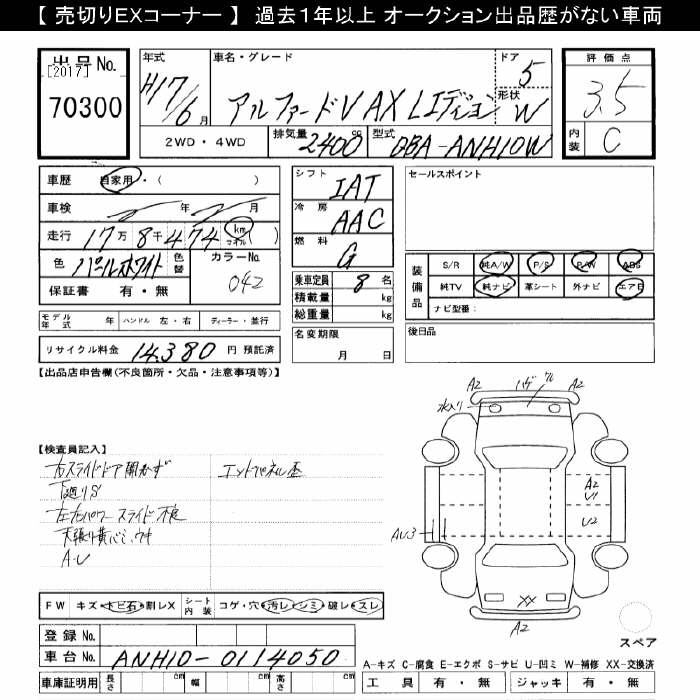 【 売切りEXコーナー 】 過去１年以上 オークション出品歴がない車両
出品No.
[2017]
70300
年式
H17/6月
車名・グレード
アルファードV AX Lエディション
ドア
5
形状
W
2WD・4WD
排気量
2400cc
型式
DBA-ANH10W
評価点
3.5
内装
C
車歴 自家用・( )
車検 年 月
走行 17万8千474 km マイル ( )
色 パールホワイト 色替
カラーNo. 042
保証書 有・無
シフト IAT
冷房 AAC
燃料 G
乗車定員 8名
積載量 kg
総重量 kg
セールスポイント
装備品
S/R 純A/W P/S P/W ABS
純TV 純ナビ 革シート 外ナビ エアB
ナビ型番:
モデル年式 年 ハンドル 左・右 ディーラー・並行
リサイクル料金 14,380 円 預託済
名変期限
月 日
後日品
【出品店申告欄(不良箇所・欠品・注意事項等)】
【検査員記入】
右スライドドア開かず
エンドパネル歪
下廻りS
左右パワースライド不良
天張り黄バミ、ウキ
A・U
A2 ハゲ ワレ A2
水入り
A2
U1
U2
AU3
XX
A2
FW キズ・トビ石・割レX
シート内装 コゲ・穴・汚レ・シミ・破レ・スレ
スペア
登録No.
車台No. ANH10-0114050
A-キズ C-腐食 E-エクボ S-サビ U-凹ミ W-補修 XX-交換済
車庫証明用 長さ cm 幅 cm 高さ cm
工具 有・無 ジャッキ 有・無